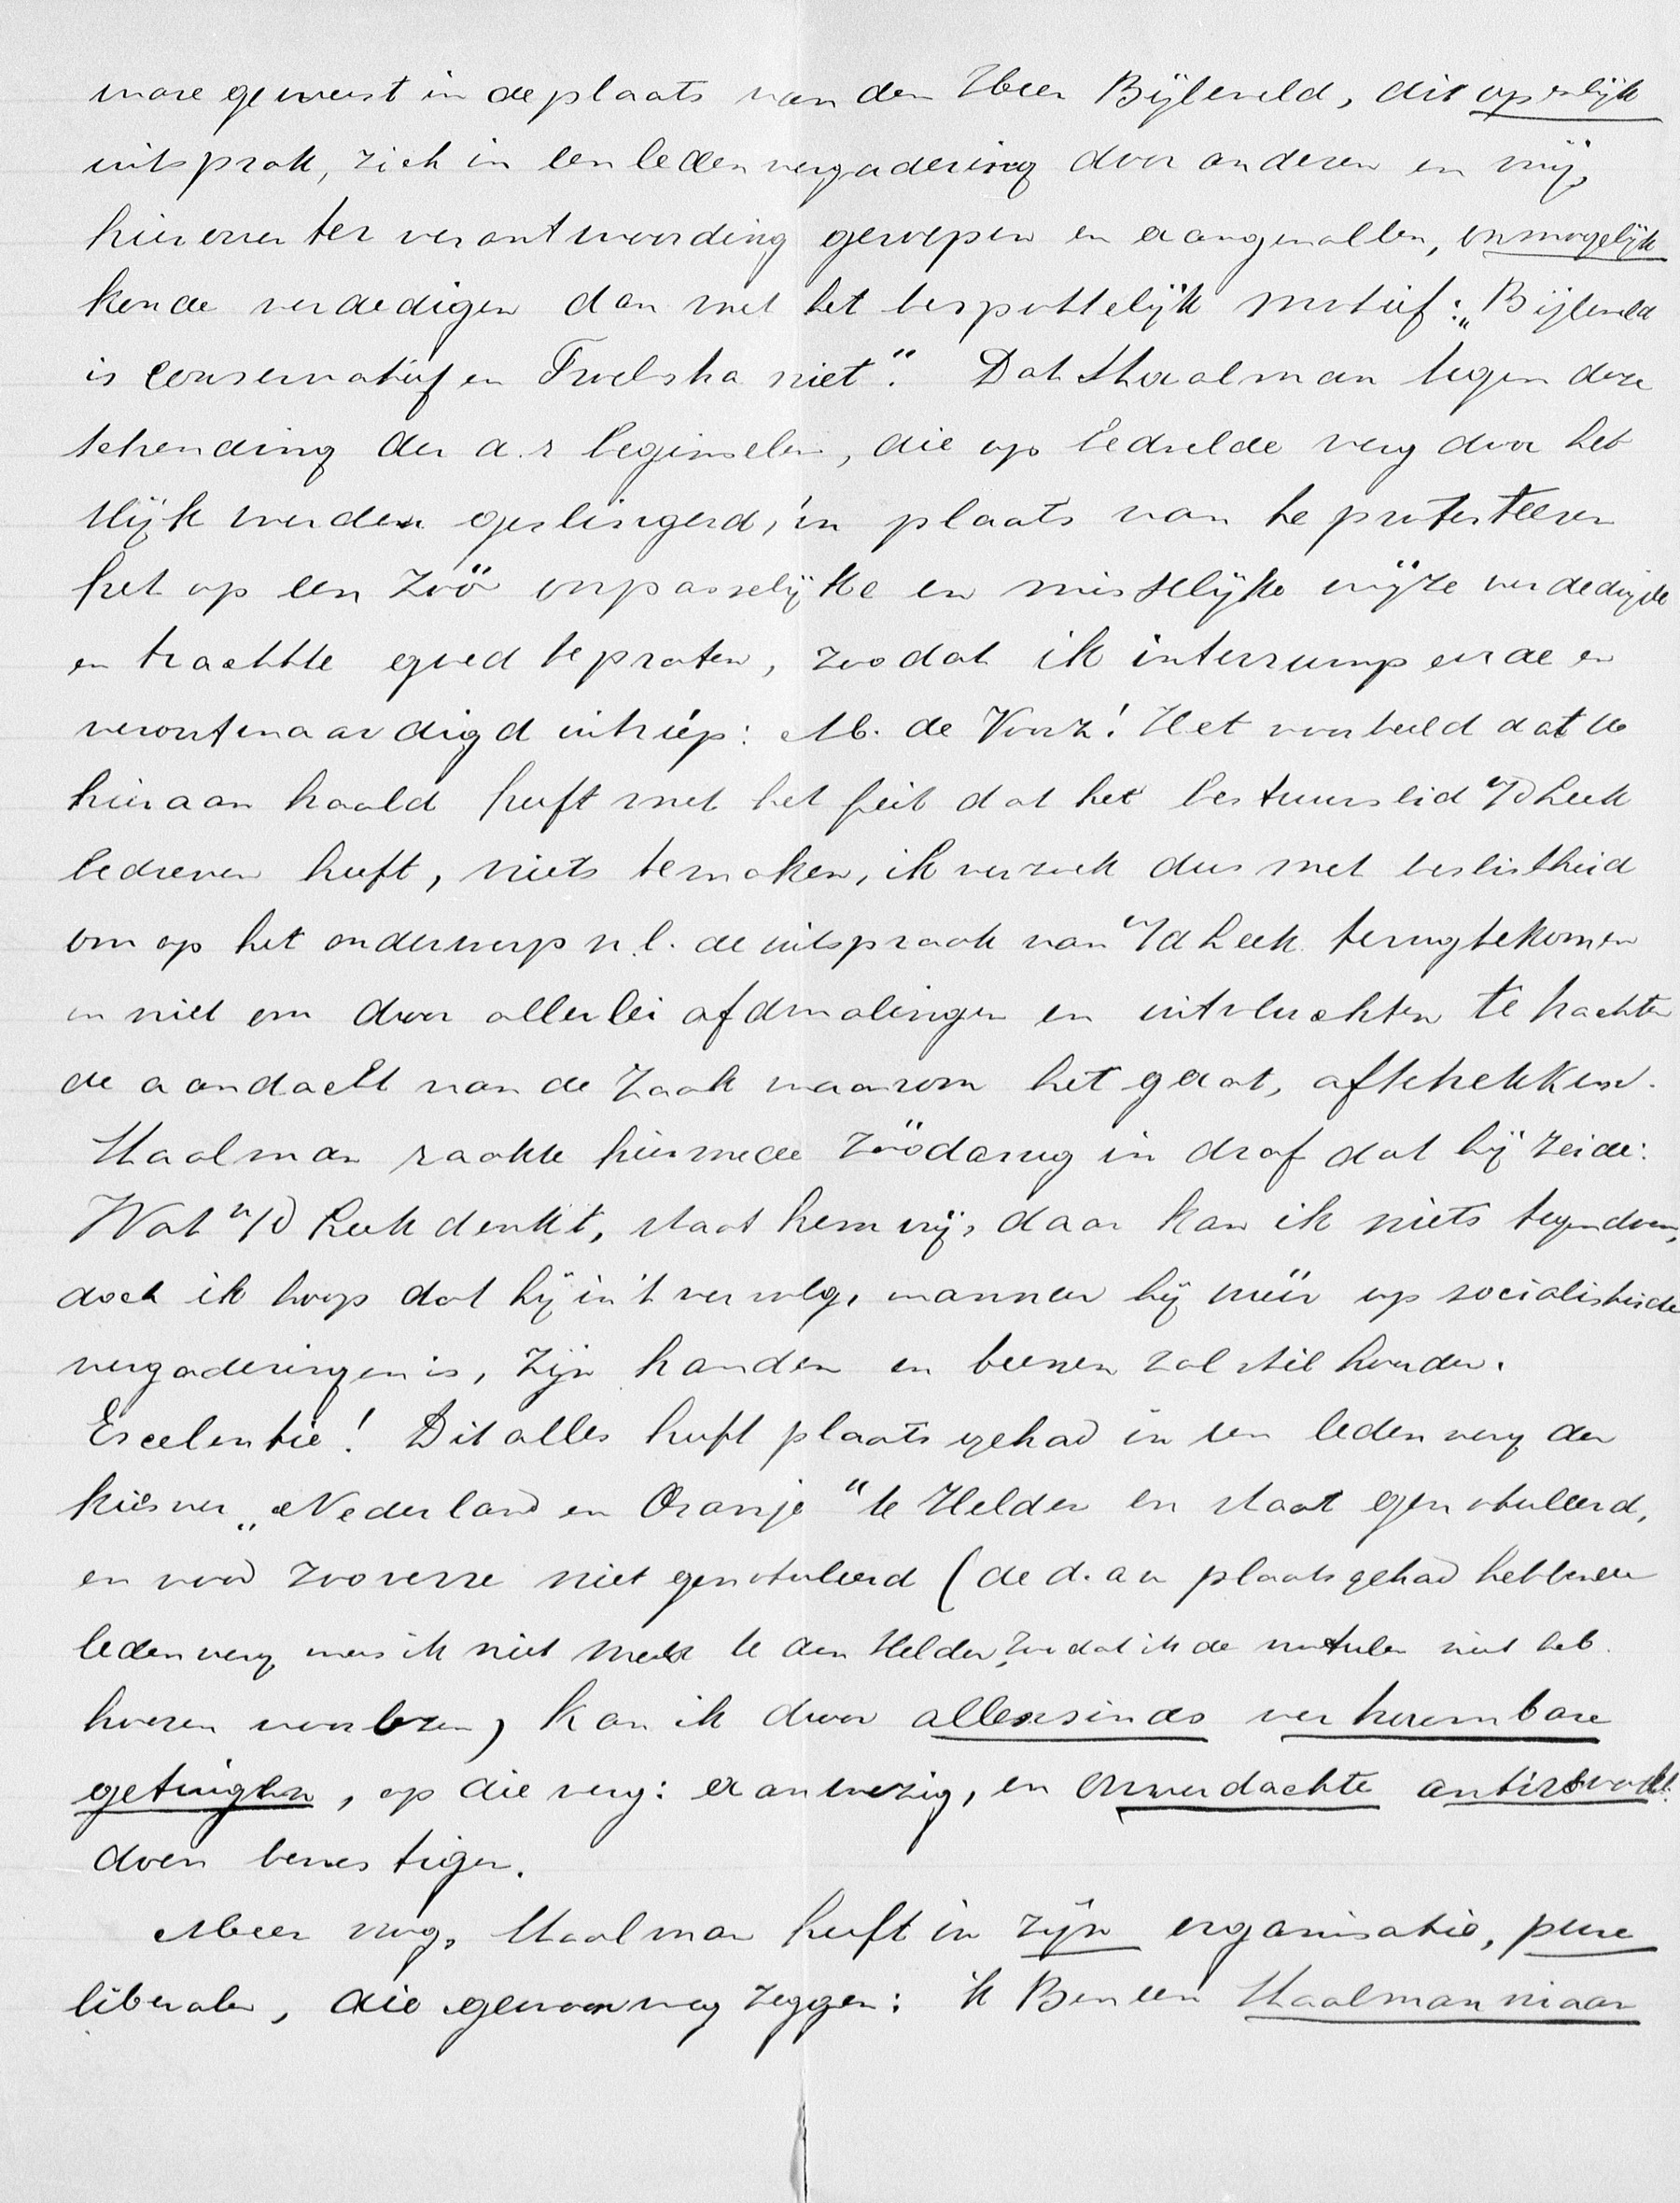 ware geweest in de plaats van den Heer Bijleveld, dit openlijk
uitsprak, zich in een ledenvergadering door anderen en mij,
hierover ter verantwoording geroepen en aangevallen, onmogelijk
konde verdedigen dan met het bespottelijk motief: „Bijleveld
is conservatief en Troelstra niet". Dat Staalman tegen deze
schending der a.r beginselen, die op bedoelde verg door het
slijk werden geslingerd, in plaats van te protesteeren
het op een zóó onpasselijke en misselijke wijze verdedigde
en trachtte goed te praten, zoodat ik interrumpeerde en
verontwaardigd uitriep: M. de Voorz! Het voorbeeld dat U
hier aan haald heeft met het feit dat het bestuurslid v/d Leek
bedreven heeft, niets te maken, ik verzoek dus met beslistheid
om op het onderwerp n.l. de uitspraak van v/d Leek terug te komen
en niet om door allerlei afdwalingen en uitvluchten te trachten
de aandacht van de zaak waarom het gaat, aftetrekken.
Staalman raakte hiermede zóódanig in draf dat hij zeide:
Wat v/d Leek denkt, staat hem vrij, daar kan ik niets tegen doen,
doch ik hoop dat hij in 't vervolg, wanneer hij wéér op socialistische
vergaderingen is, zijn handen en beenen zal stil houden.
Excelentie! Dit alles heeft plaats gehad in een leden verg der
kiesver „Nederland en Oranje" te Helder en staat genotuleerd,
en voor zooverre niet genotuleerd (de d. a v plaats gehad hebbende
leden verg was ik niet meer te den Helder, zoodat ik de notulen niet heb
hooren voorlezen) kan ik door alleszinds vertrouwbare
getuigen, op die verg: aanwezig, en onverdachte antirevol.
doen bevestigen.
Meer nog, Staalman heeft in zijn organisatie, pure
liberalen, die gewoonweg zeggen: ik Ben een Staalmanniaan